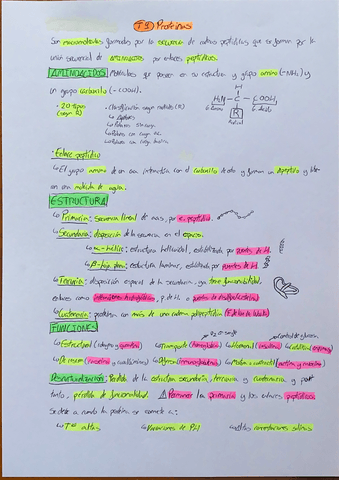 T3) Proteínas
Son macromoléculas formadas por la secuencia de cadenas peptídicas que se forman por la
unión secuencial de aminoácidos por enlaces peptídicos.
AMINOÁCIDOS Moléculas que poseen en su estructura un grupo amino (-NH₂) y
un grupo carboxilo (-COOH).
H
H₂N - C - COOH
R
· 20 tipos
(según R)
· Clasificación según radicales (R)
↳ Apolares
↳ Polares sin carga
↳ Polares con carga
↳ Polares con carga
· Enlace peptídico
↳ El grupo amino de un aa interactúa con el carboxilo de otro y forman un dipéptido y
en una molécula de agua.
ESTRUCTURA
↳ Primaria: Secuencia lineal de aas, por e. peptídico.
↳ Secundaria: disposición de la secuencia en el espacio.
↳ α-hélice: estructura helicoidal, estabilizada por puentes de H.
↳ β-lámina: estructura laminar, estabilizada por puentes de H.
↳ Terciaria: disposición espacial de la secundaria, ya tiene funcionalidad.
enlaces como interacciones hidrofóbicas, p. de H. o puentes de disulfuro
↳ Cuaternaria: proteínas con más de una cadena polipeptídica
FUNCIONES
↳ Estructural (colágeno y queratina) ↳ Transporte (hemoglobina) ↳ Hormonal (insulina) ↳ Catalítica (enzimas)
↳ De reserva (caseína y ovoalbúmina) ↳ Defensa (inmunoglobulinas) ↳ Motora o contráctil (actina y miosina)
Desnaturalización: Pérdida de la estructura secundaria, terciaria y cuaternaria y por
tanto, pérdida de funcionalidad. ⚠ Permanece la primaria y los enlaces peptídicos
Se debe a cuando la proteína se somete a:
↳ Tª altas ↳ Variaciones de pH ↳ Altas concentraciones salinas